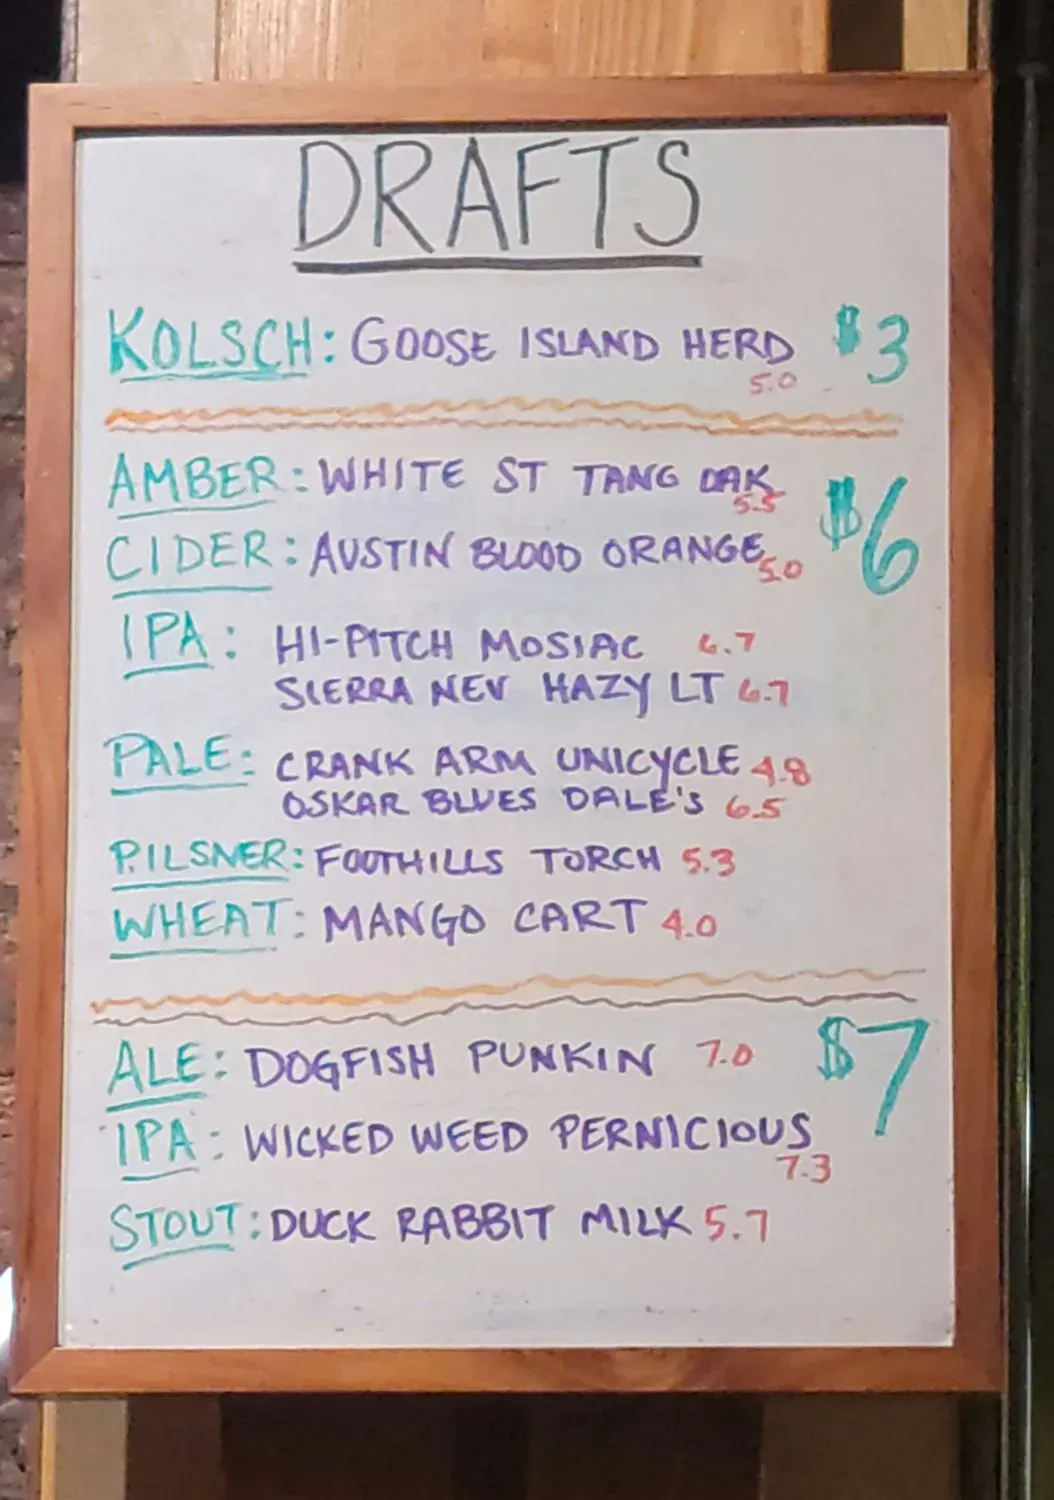 DRAFTS
KOLSCH: GOOSE ISLAND HERD $3
5.0
AMBER: WHITE ST TANG OAK
5.5
$6
CIDER: AUSTIN BLOOD ORANGE 5.0
IPA: HI-PITCH MOSIAC 6.7
SIERRA NEV HAZY LT 6.7
PALE: CRANK ARM UNICYCLE 4.8
OSKAR BLUES DALE'S 6.5
PILSNER: FOOTHILLS TORCH 5.3
WHEAT: MANGO CART 4.0
ALE: DOGFISH PUNKIN 7.0 $7
IPA: WICKED WEED PERNICIOUS
7.3
STOUT: DUCK RABBIT MILK 5.7